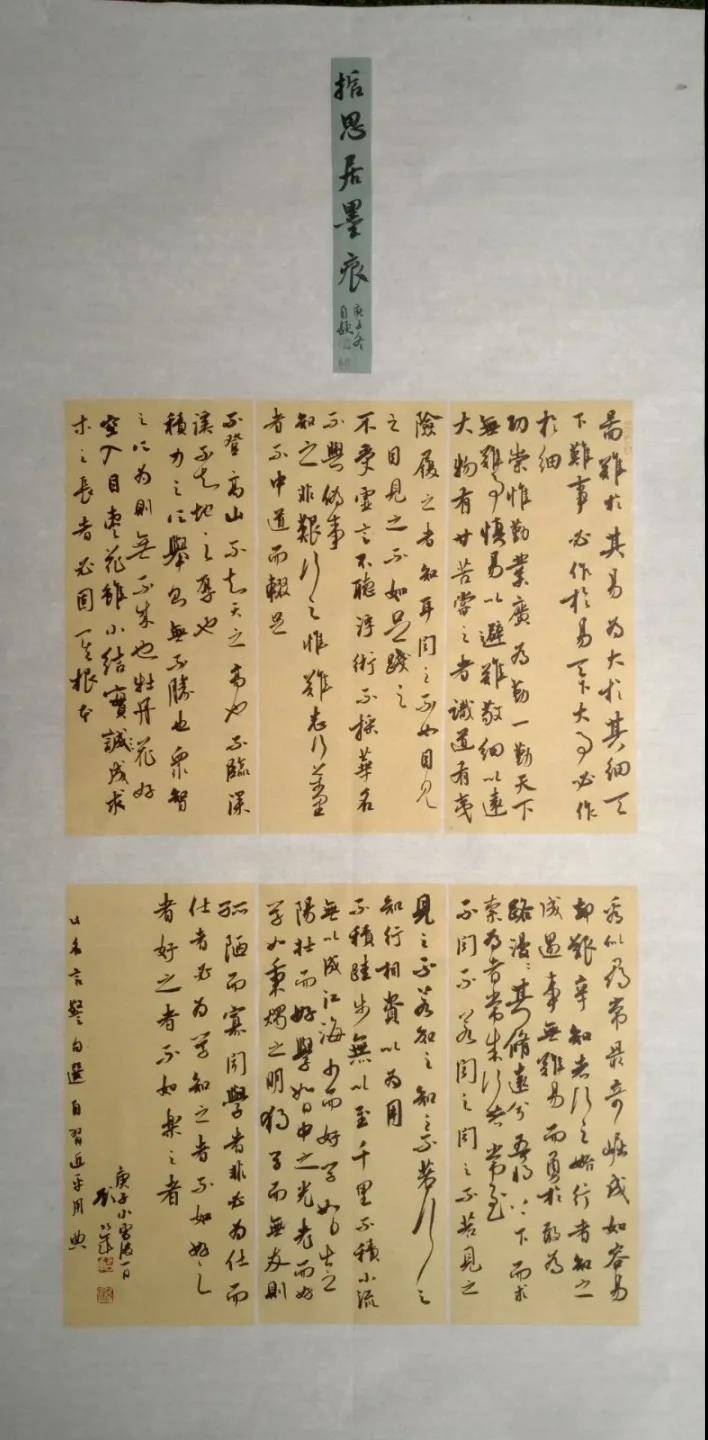 思居墨痕
庚子冬
自題
圖難於其易為大於其細天
下難事必作於易天下大事必作
於細
功崇惟勤業廣為勤一勤天下
無難事慎易以避難敬細以遠
大物有甘苦嘗之者識道有夷
險履之者知耳聞之不如目見
之目見之不如足踐之
不受虛言不聽浮術不採華名
不興偽事
知之非艱行之惟難志行萬里
者不中道而輟足
不登高山不知天之高也不臨深
溪不知地之厚也
積力之所舉則無不勝也眾智
之所為則無不成也牡丹花好
空入目棗花雖小結實誠成求
木之長者必固其根本
看似尋常最奇崛成如容易
却艱辛知者行之始行者知之
成遇事無難易而勇於敢為
路漫漫其脩遠兮吾將上下而求
索為者常成行者常至
不聞不若聞之聞之不若見之
見之不若知之知之不若行之
知行相資以為用
不積跬步無以至千里不積小流
無以成江海少而好學如日出之
陽壯而好學如日中之光老而好
學如秉燭之明獨學而無友則
孤陋而寡聞學者非必為仕而
仕者必為學知之者不如好之
者好之者不如樂之者
以名言警句選自習近平用典
庚子小雪後一日